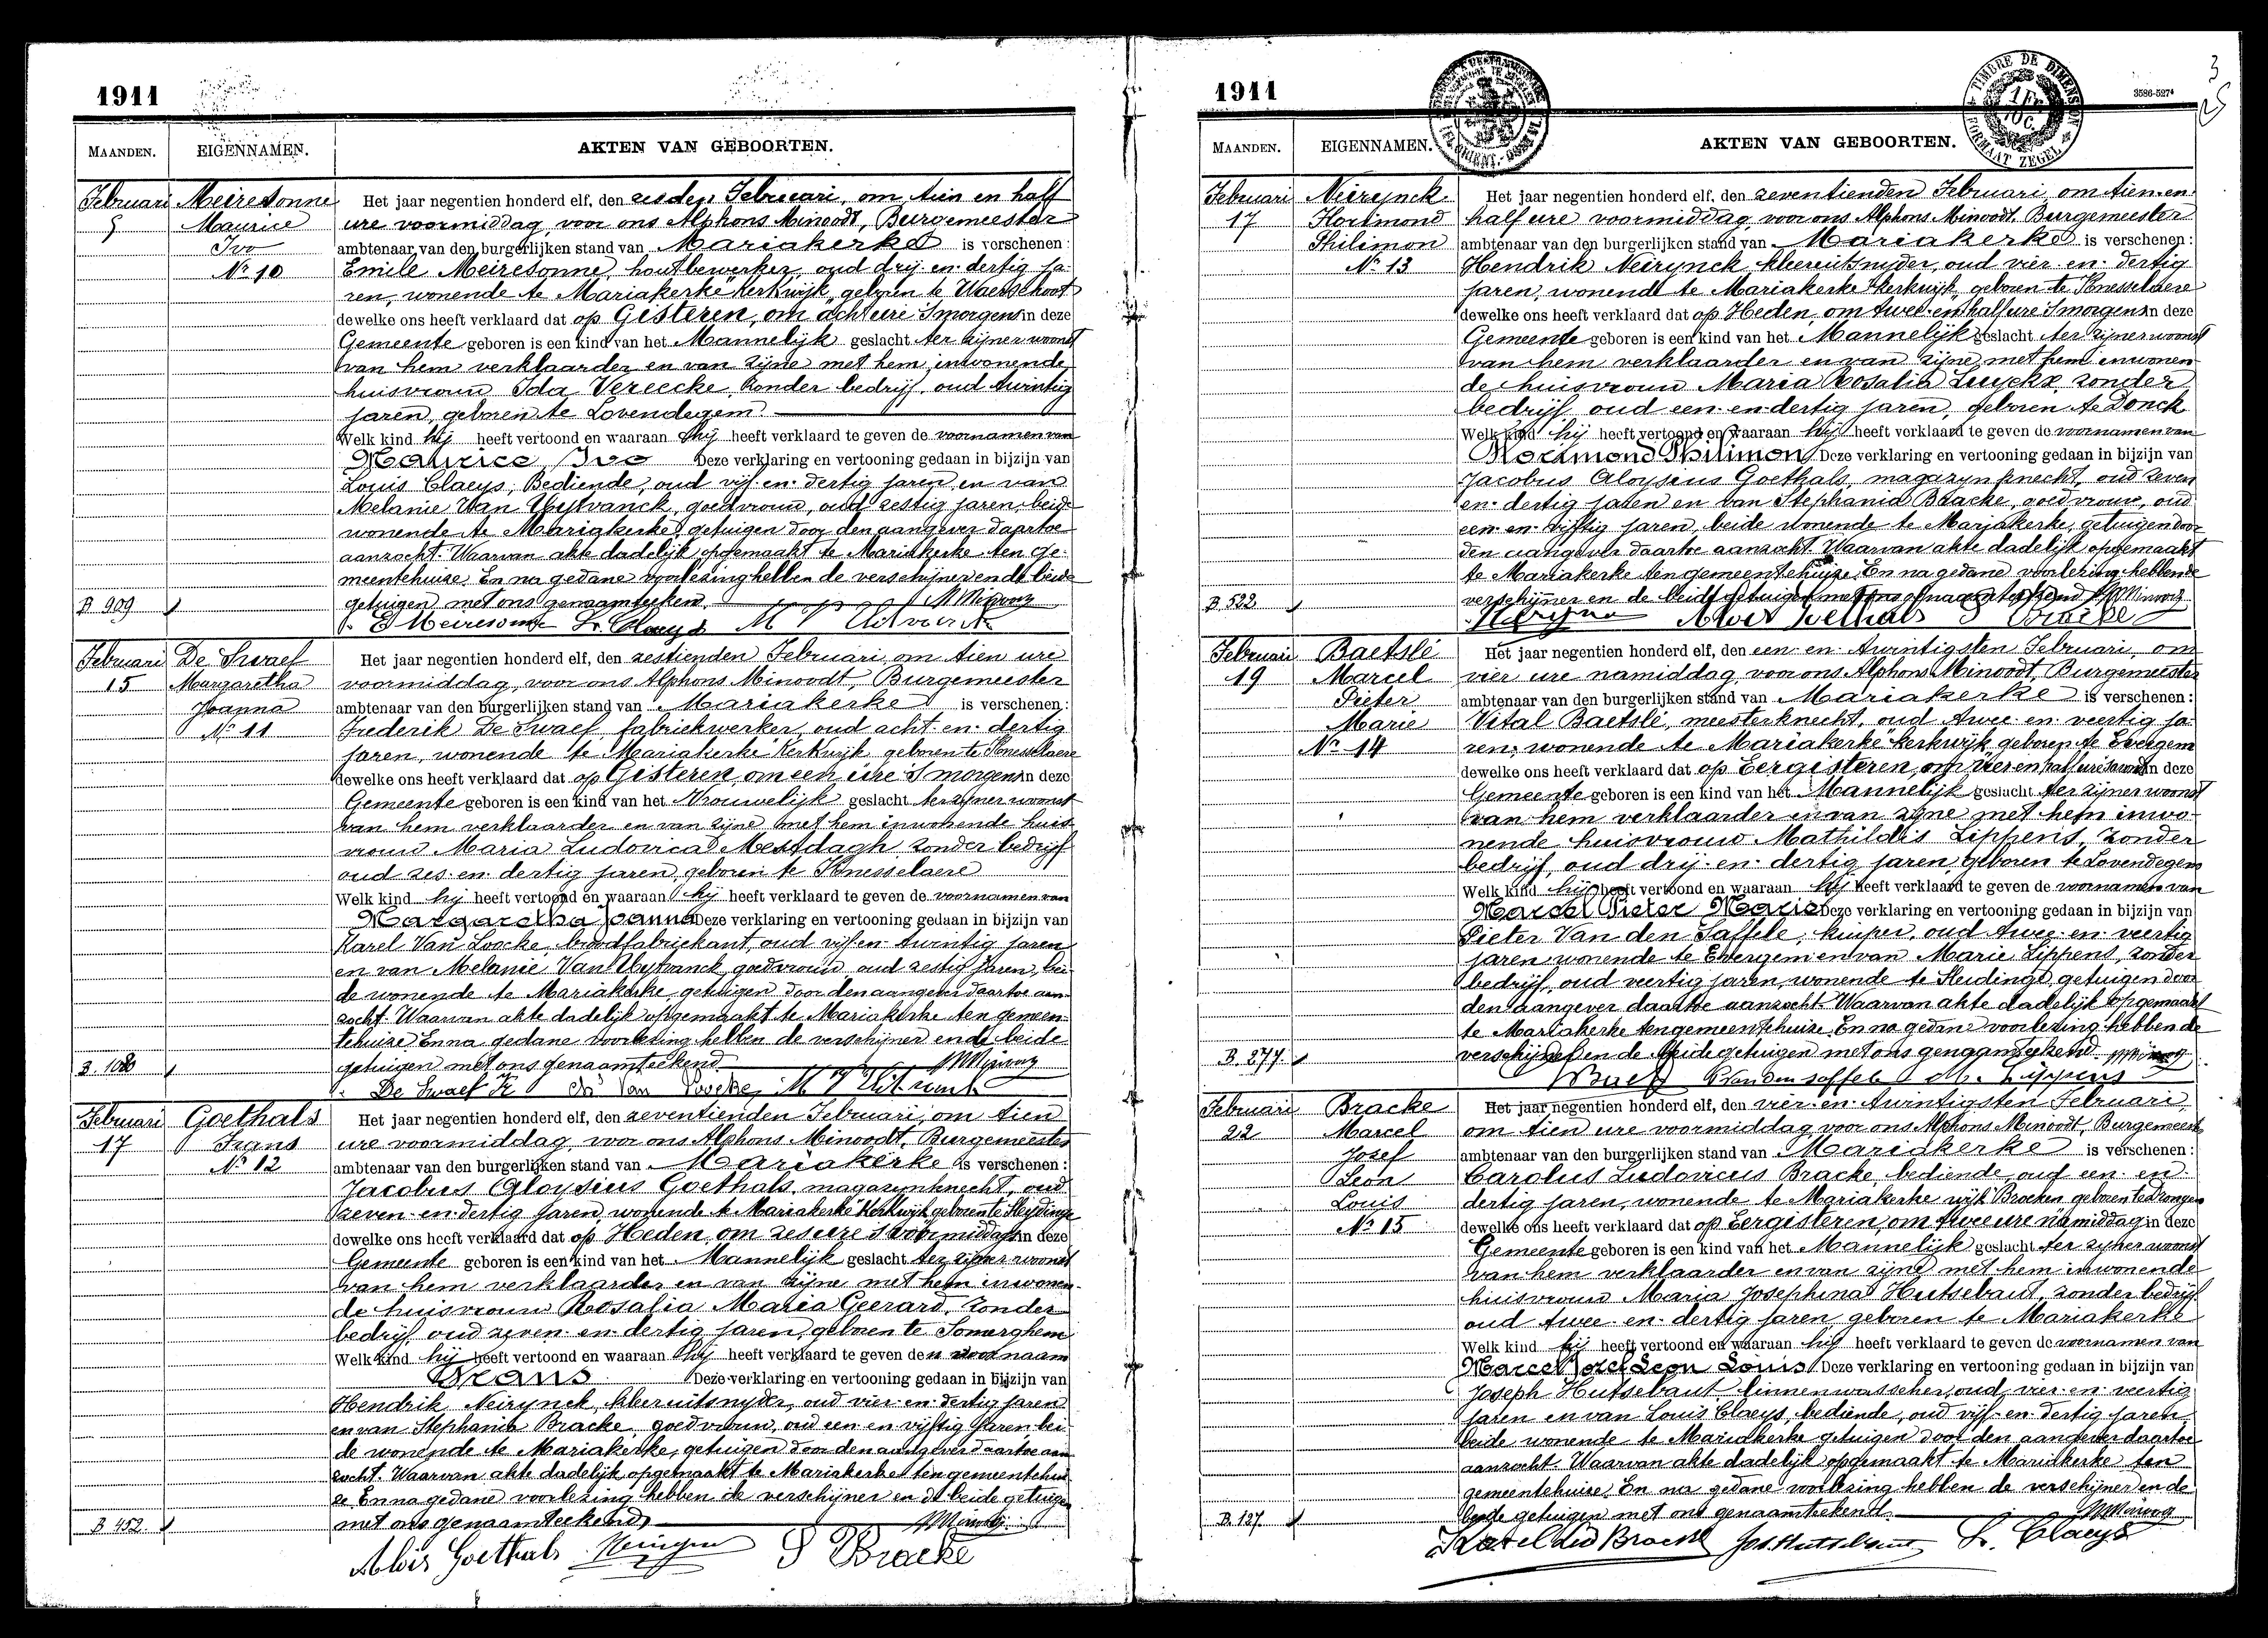 1911
MAANDEN.
EIGENNAMEN.
AKTEN VAN GEBOORTEN.
Februari
5
Meiresonne
Maurice
Ivo
No 10
B 909
Het jaar negentien honderd elf, den zesden Februari, om tien en half
ure voormiddag, voor ons Alphons Minoodt, Burgemeester
ambtenaar van den burgerlijken stand van Mariakerke is verschenen:
Emile Meiresonne, houtbewerker, oud drij-en-dertig ja-
ren, wonende te Mariakerke "Kerkwijk" geboren te Waerschoot
dewelke ons heeft verklaard dat op Gisteren, om acht ure 's morgens in deze
Gemeente geboren is een kind van het Mannelijk geslacht ter zijner woonst
van hem verklaarder en van zijne met hem inwonende
huisvrouw Ida Vereecke, zonder bedrijf, oud twintig
jaren, geboren te Lovendegem.
Welk kind hij heeft vertoond en waaraan hij heeft verklaard te geven de voornamen van
Maurice Ivo Deze verklaring en vertooning gedaan in bijzijn van
Louis Claeys, Bediende, oud vijf-en-dertig jaren en van
Melanie Van Uytvanck, goedvrouw, oud zestig jaren, beide
wonende te Mariakerke, getuigen door den aangever daartoe
aanzocht. Waarvan akte dadelijk opgemaakt te Mariakerke ten ge-
meentehuize. En na gedane voorlezing hebben de verschijner en de beide
getuigen met ons genaamteekend.
E Meiresonne L. Claeys
Februari
15
De Swaef
Margaretha
Joanna
No 11
B. 1080
Het jaar negentien honderd elf, den zestienden Februari, om tien ure
voormiddag, voor ons Alphons Minoodt, Burgemeester
ambtenaar van den burgerlijken stand van Mariakerke is verschenen:
Frederik De Swaef, fabriekwerker, oud acht-en-dertig
jaren, wonende te Mariakerke Kerkwijk, geboren te Knesselaere
dewelke ons heeft verklaard dat op Gisteren, om een ure 's morgens in deze
Gemeente geboren is een kind van het Vrouwelijk geslacht ter zijner woonst
van hem verklaarder en van zijne met hem inwonende huis-
vrouw Maria Ludovica Mestdagh, zonder bedrijf
oud zes-en-dertig jaren, geboren te Knesselaere
Welk kind hij heeft vertoond en waaraan hij heeft verklaard te geven de voornamen van
Margaretha Joanna Deze verklaring en vertooning gedaan in bijzijn van
Karel Van Loocke, broodfabriekant, oud vijf-en-twintig jaren
en van Melanie Van Uytvanck, goedvrouw, oud zestig jaren, bei-
de wonende te Mariakerke, getuigen door den aangever daartoe aan-
zocht. Waarvan akte dadelijk opgemaakt te Mariakerke ten gemeen-
tehuize En na gedane voorlezing hebben de verschijner en de beide
getuigen met ons genaamteekend
De Swaef Fr
Februari
17
Goethals
Frans
No 12
B 452.
Het jaar negentien honderd elf, den zeventienden Februari, om tien
ure voormiddag, voor ons Alphons Minoodt, Burgemeester
ambtenaar van den burgerlijken stand van Mariakerke is verschenen:
Jacobus Aloysius Goethals, magazynknecht, oud
zeven-en-dertig jaren, wonende te Mariakerke "Kerkwijk geboren te Sleydinge
dewelke ons heeft verklaard dat op Heden, om zes ure 's voormiddags in deze
Gemeente geboren is een kind van het Mannelijk geslacht ter zijner woonst
van hem verklaarder en van zijne met hem inwonen-
de huisvrouw Rosalia Maria Geerard, zonder
bedrijf, oud zeven-en-dertig jaren, geboren te Somerghem
Welk kind hij heeft vertoond en waaraan hij heeft verklaard te geven den voornaam
Frans Deze verklaring en vertooning gedaan in bijzijn van
Hendrik Neirynck, kleeruitsnyder, oud vier-en-dertig jaren
en van Stephania Bracke, goedvrouw, oud een-en-vijftig jaren bei-
de wonende te Mariakerke, getuigen door den aangever daartoe aan-
zocht. Waarvan akte dadelijk opgemaakt te Mariakerke ten gemeentehui-
ze En na gedane voorlezing hebben de verschijner en de beide getuigen
met ons genaamteekend
Alois Goethals S Bracke
1911
3586-527⁴
3
25
TIMBRE DE DIMENSION
FORMAAT ZEGEL
MAANDEN.
EIGENNAMEN.
AKTEN VAN GEBOORTEN.
Februari
17
Neirynck
Hortimond
Philimon
No 13
B. 522
Het jaar negentien honderd elf, den zeventienden Februari, om tien-en-
half ure voormiddag, voor ons Alphons Minoodt, Burgemeester
ambtenaar van den burgerlijken stand van Mariakerke is verschenen:
Hendrik Neirynck, kleeruitsnyder, oud vier-en-dertig
jaren, wonende te Mariakerke "Kerkwijk" geboren te Knesselaere
dewelke ons heeft verklaard dat op Heden, om twee-en-half ure 's morgens in deze
Gemeente geboren is een kind van het Mannelijk geslacht ter zijner woonst
van hem verklaarder en van zijne met hem inwonen-
de huisvrouw Maria Rosalia Luyckx, zonder
bedrijf, oud een-en-dertig jaren, geboren te Donck
Welk kind hij heeft vertoond en waaraan hij heeft verklaard te geven de voornamen van
Hortimond Philimon Deze verklaring en vertooning gedaan in bijzijn van
Jacobus Aloysius Goethals, magazynknecht, oud zeven
en-dertig jaren en van Stephania Bracke, goedvrouw, oud
een-en-vijftig jaren, beide wonende te Mariakerke, getuigen door
den aangever daartoe aanzocht. Waarvan akte dadelijk opgemaakt
te Mariakerke ten gemeentehuize. En na gedane voorlezing hebben de
verschijner en de beide getuigen met ons genaamteekend
Alois Goethals S Bracke
Februari
19
Baetslé
Marcel
Pieter
Marie
No 14
B. 277.
Het jaar negentien honderd elf, den een-en-twintigsten Februari, om
vier ure namiddag, voor ons Alphons Minoodt, Burgemeester
ambtenaar van den burgerlijken stand van Mariakerke is verschenen:
Vital Baetslé, meesterknecht, oud twee-en-veertig ja-
ren, wonende te Mariakerke "kerkwijk", geboren te Evergem
dewelke ons heeft verklaard dat op Eergisteren, om vier en half ure 's avonds in deze
Gemeente geboren is een kind van het Mannelijk geslacht ter zijner woonst
van hem verklaarder en van zijne met hem inwo-
nende huisvrouw Mathildis Lippens, zonder
bedrijf, oud drij-en-dertig jaren, geboren te Lovendegem
Welk kind hij heeft vertoond en waaraan hij heeft verklaard te geven de voornamen van
Marcel Pieter Marie Deze verklaring en vertooning gedaan in bijzijn van
Pieter Van den Saffele, kuiper, oud twee-en-veertig
jaren wonende te Evergem en van Marie Lippens, zonder
bedrijf, oud veertig jaren, wonende te Sleidinge, getuigen door
den aangever daartoe aanzocht. Waarvan akte dadelijk opgemaakt
te Mariakerke ten gemeentehuize. En na gedane voorlezing hebben de
verschijner en de beide getuigen met ons genaamteekend
P Van den saffele M. Lippens
Februari
22
Bracke
Marcel
Josef
Leon
Louis
No 15
B. 137
Het jaar negentien honderd elf, den vier-en-twintigsten Februari,
om tien ure voormiddag, voor ons Alphons Minoodt, Burgemeester
ambtenaar van den burgerlijken stand van Mariakerke is verschenen:
Carolus Ludovicus Bracke, bediende, oud een-en-
dertig jaren, wonende te Mariakerke wijk Brocken, geboren te Drongen
dewelke ons heeft verklaard dat op Eergisteren, om twee ure namiddag in deze
Gemeente geboren is een kind van het Mannelijk geslacht ter zijner woonst
van hem verklaarder en van zijne met hem inwonende
huisvrouw Maria Josephina Hutsebaut, zonder bedrijf
oud twee-en-dertig jaren, geboren te Mariakerke
Welk kind hij heeft vertoond en waaraan hij heeft verklaard te geven de voornamen van
Marcel Jozef Leon Louis Deze verklaring en vertooning gedaan in bijzijn van
Joseph Hutsebaut, linnenwasscher, oud vier-en-veertig
jaren en van Louis Claeys, bediende, oud vijf-en-dertig jaren,
beide wonende te Mariakerke getuigen door den aangever daartoe
aanzocht. Waarvan akte dadelijk opgemaakt te Mariakerke ten
gemeentehuize. En na gedane voorlezing hebben de verschijner en de
beide getuigen met ons genaamteekend.
Karel Lod Bracke Jos. Hutsebaut L. Claeys